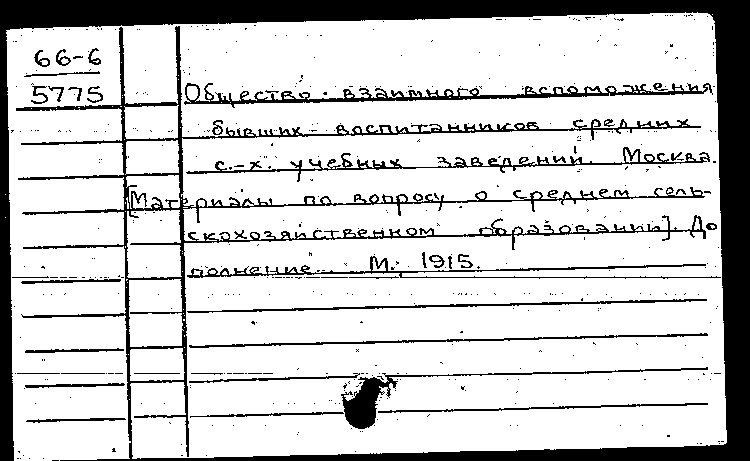 66-6
5775
Общество взаимного вспоможения
бывших воспитанников средних
с.-х. учебных заведений. Москва.
[Материалы по вопросу о среднем сель-
скохозяйственном образовании]. До
полнение. М., 1915.